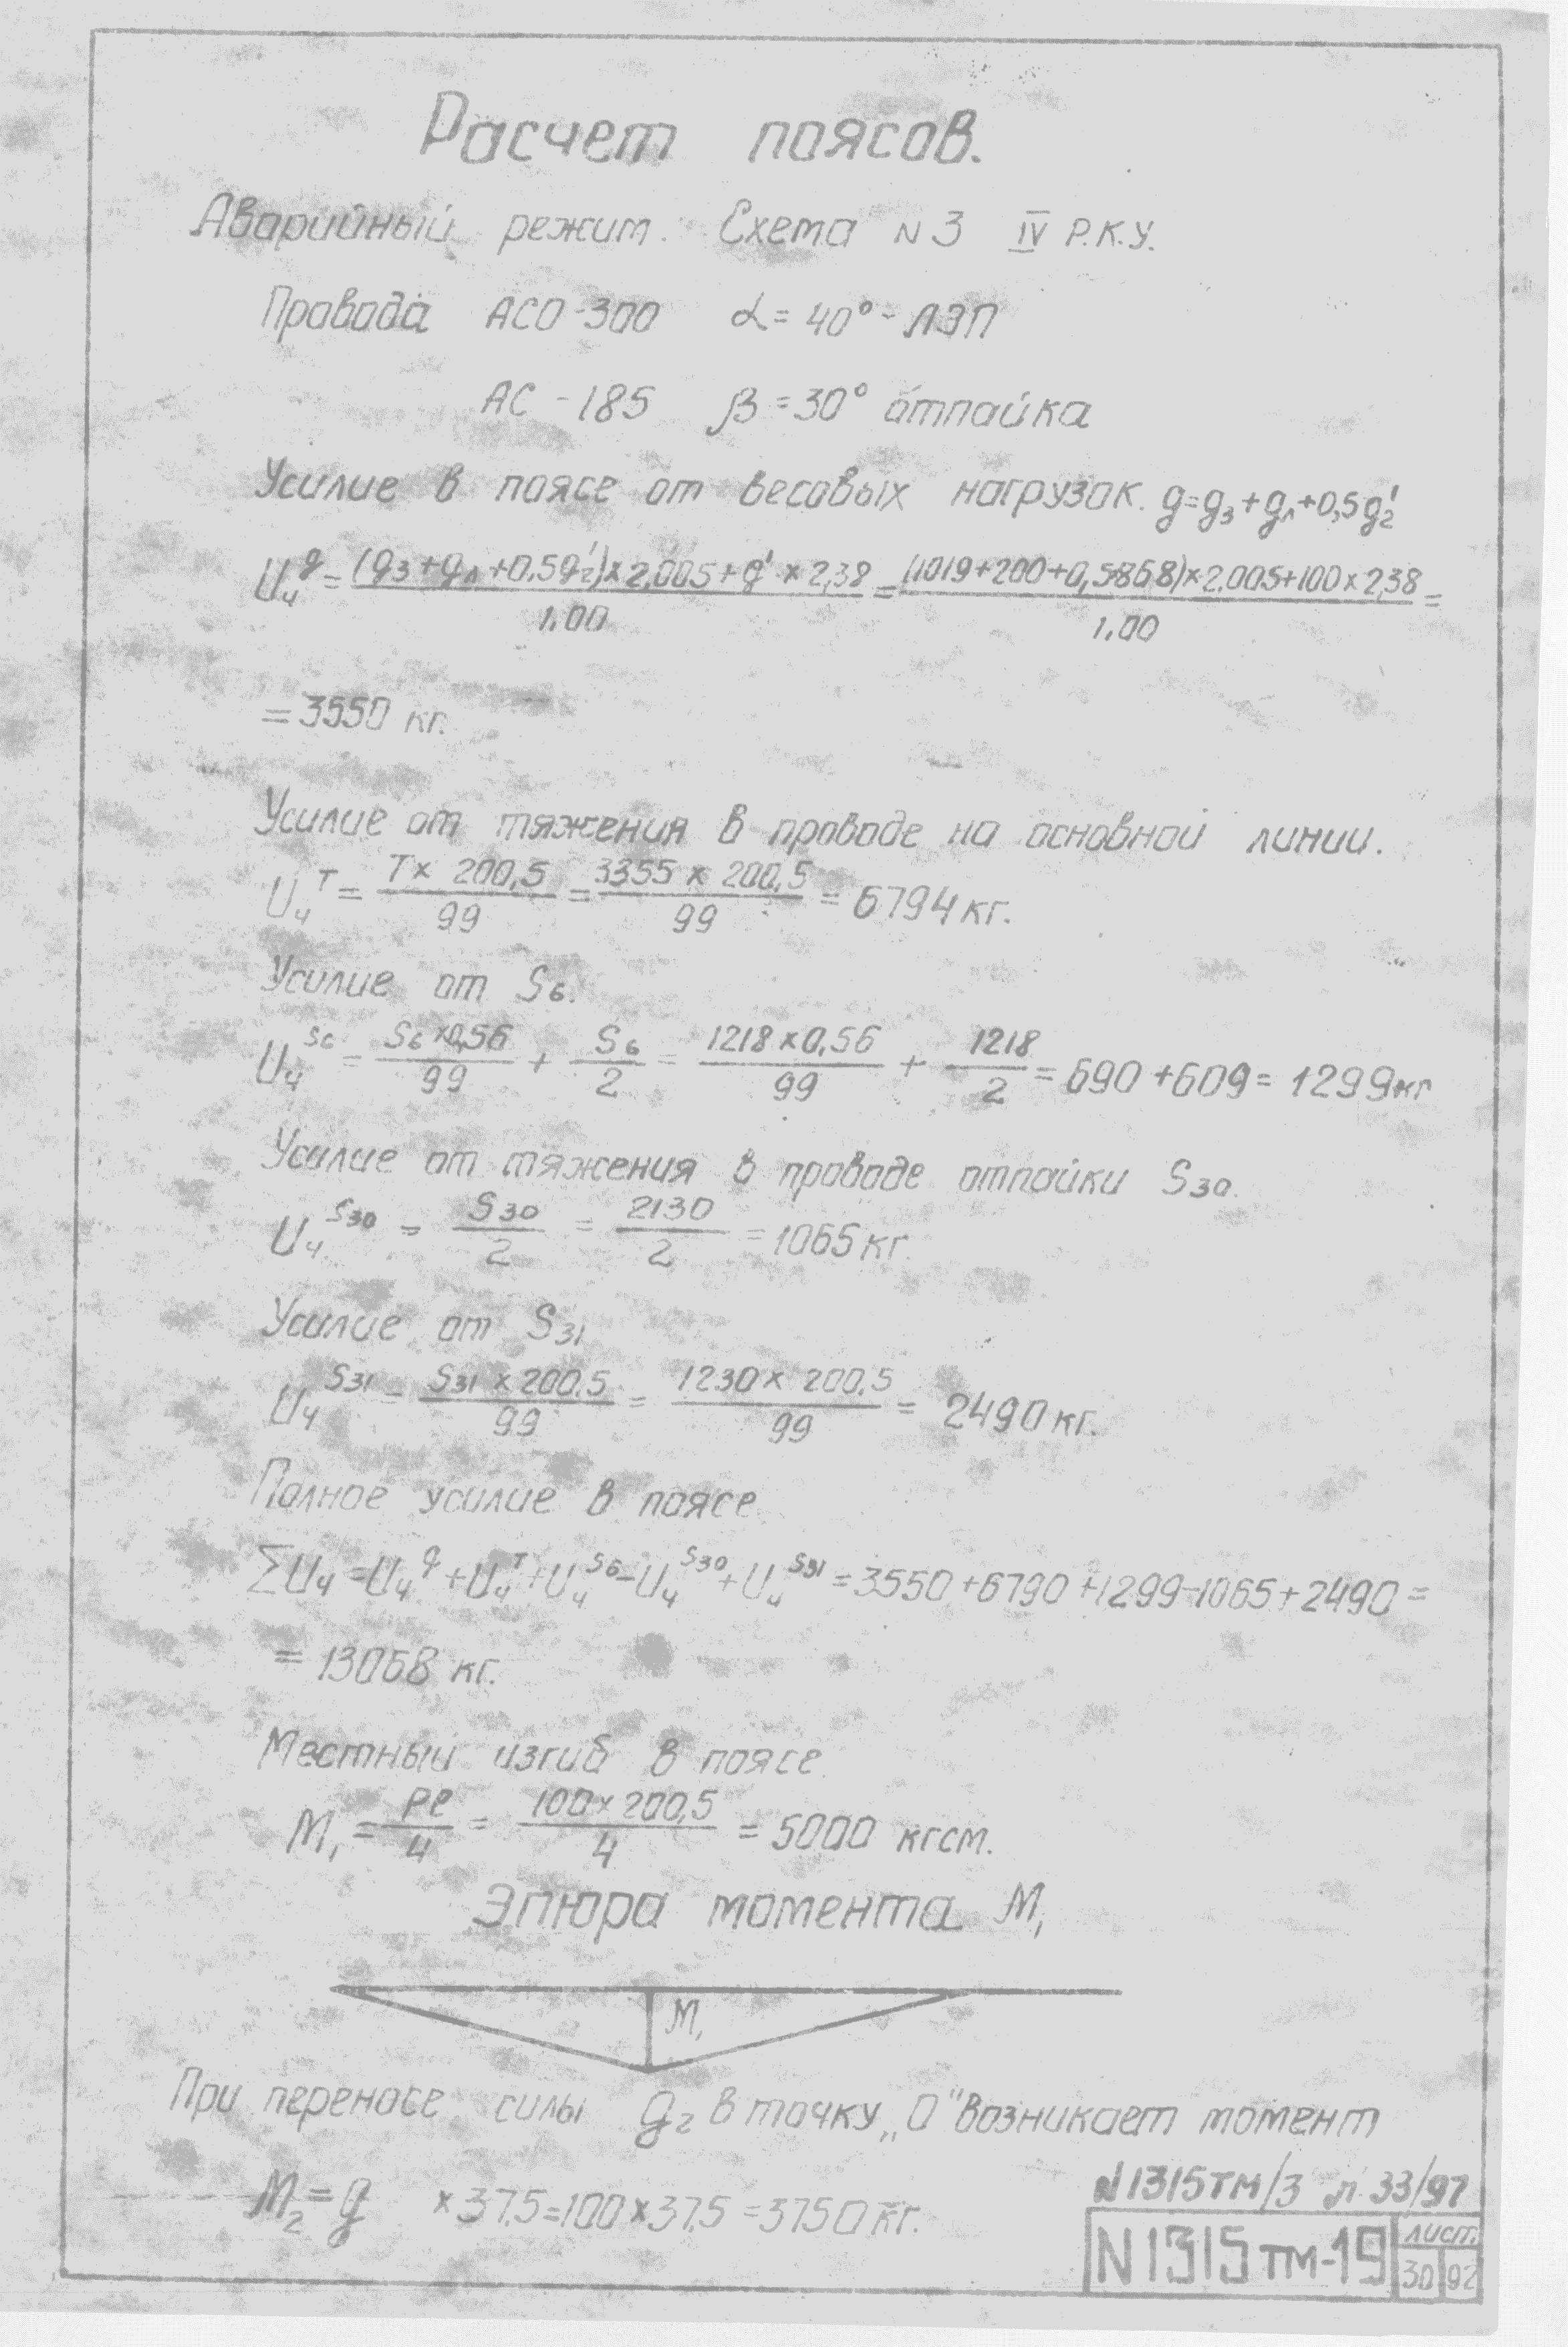 Расчет поясов.
Аварийный режим. Схема N3 IV Р.К.У.
Провода АСО-300 α=40°-ЛЭП
АС-185 β=30° отпайка
Усилие в поясе от весовых нагрузок. g=g₃+gл+0,5g₂'
U₄^g = (g₃+gл+0,5g₂')×2,005+g'×2,38 / 1.00 = (1019+200+0,5868)×2.005+100×2,38 / 1.00 =
=3550 кг.
Усилие от тяжения в проводе на основной линии.
U₄^T = T×200,5 / 99 = 3355×200,5 / 99 = 6794 кг.
Усилие от S₆.
U₄^S₆ = S₆×0,56 / 99 + S₆ / 2 = 1218×0,56 / 99 + 1218 / 2 = 690+609=1299кг
Усилие от тяжения в проводе отпайки S₃₀.
U₄^S₃₀ = S₃₀ / 2 = 2130 / 2 = 1065 кг.
Усилие от S₃₁
U₄^S₃₁ = S₃₁×200,5 / 99 = 1230×200,5 / 99 = 2490 кг.
Полное усилие в поясе.
ΣU₄=U₄^g+U₄^T+U₄^S₆-U₄^S₃₀+U₄^S₃₁=3550+6790+1299-1065+2490=
=13068 кг.
Местный изгиб в поясе.
M₁ = Pℓ / 4 = 100×200,5 / 4 = 5000 кгсм.
Эпюра момента M₁
M₁
При переносе силы g₂ в точку „О" возникает момент
M₂=g ×37.5=100×37.5=3750 кг.
N1315ТМ/3 л 33/97
N1315ТМ-19
лист.
30 92